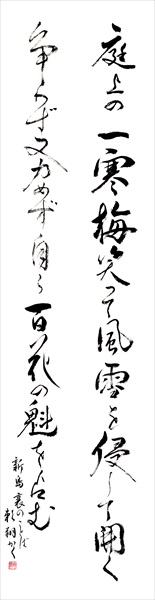 庭上の一寒梅笑って風雪を侵して開く
争らず又力めず自ら百花の魁を占む
新島襄のことば